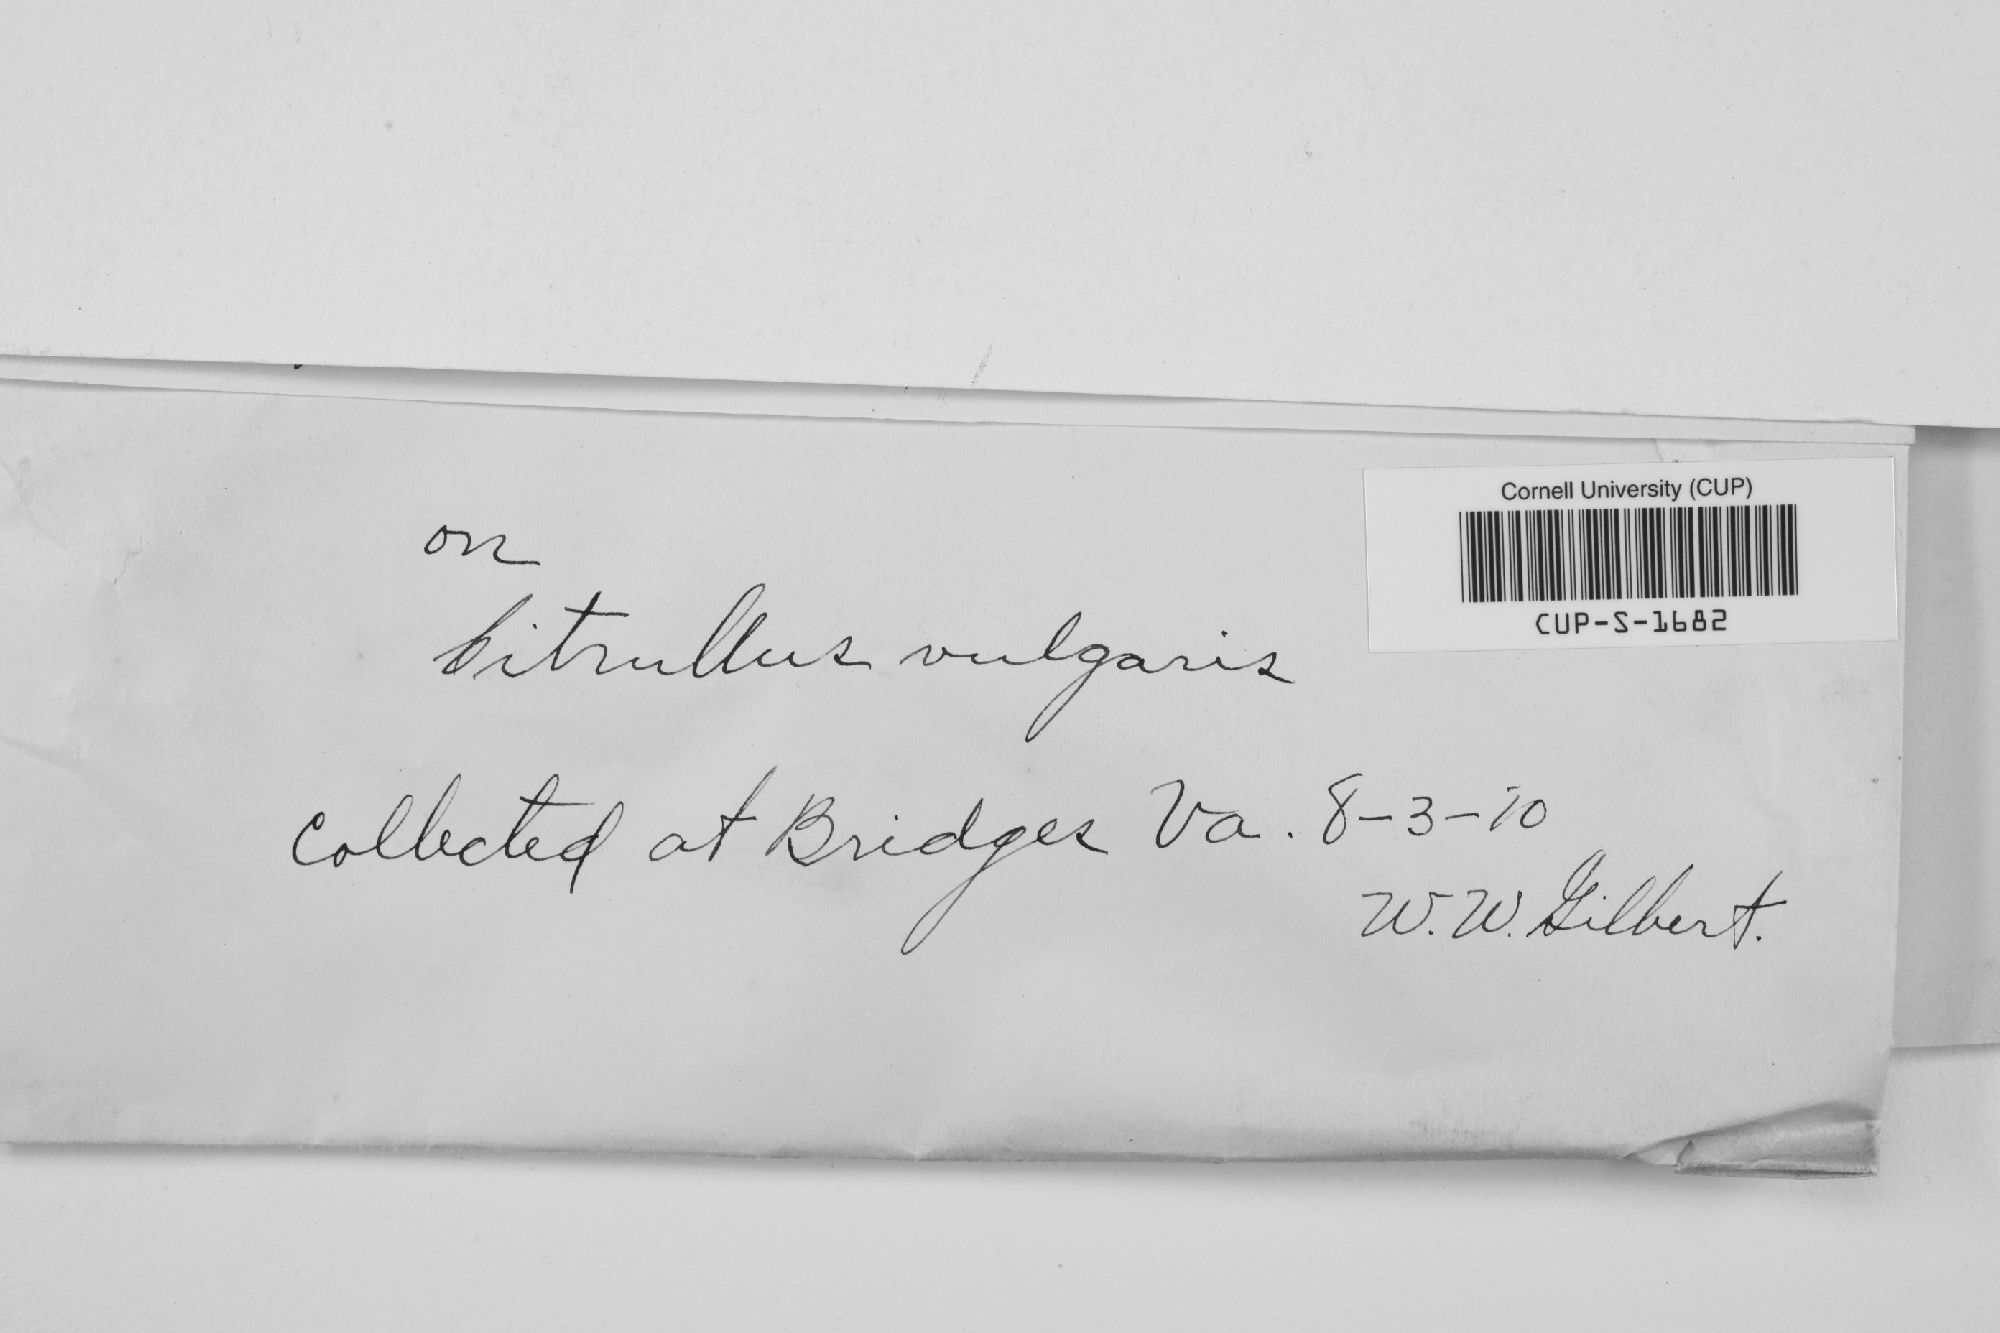 Cornell University (CUP)
CUP-S-1682
on
Citrullus vulgaris
Collected at Bridges Va. 8-3-10
W. W. Gilbert.